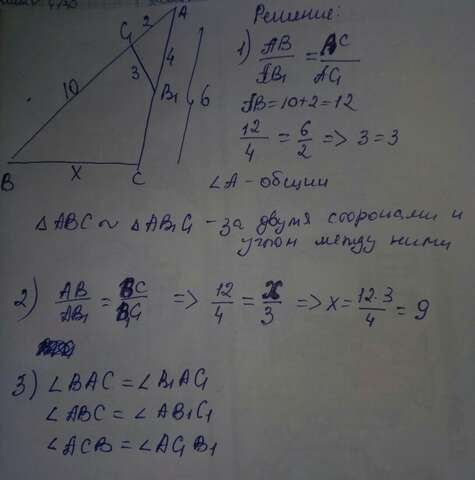 Решение:
C₁ 2 A
4
3 B₁ 6
10
B x C
1) AB/AB₁ = BC/AC₁
AB = 10 + 2 = 12
12/4 = 6/2 => 3 = 3
∠A - общий
△ABC ~ △AB₁C₁ - за двумя сторонами и
углом между ними
2) AB/AB₁ = BC/B₁C₁ => 12/4 = x/3 => x = 12·3/4 = 9
3) ∠BAC = ∠B₁AC₁
∠ABC = ∠AB₁C₁
∠ACB = ∠AC₁B₁